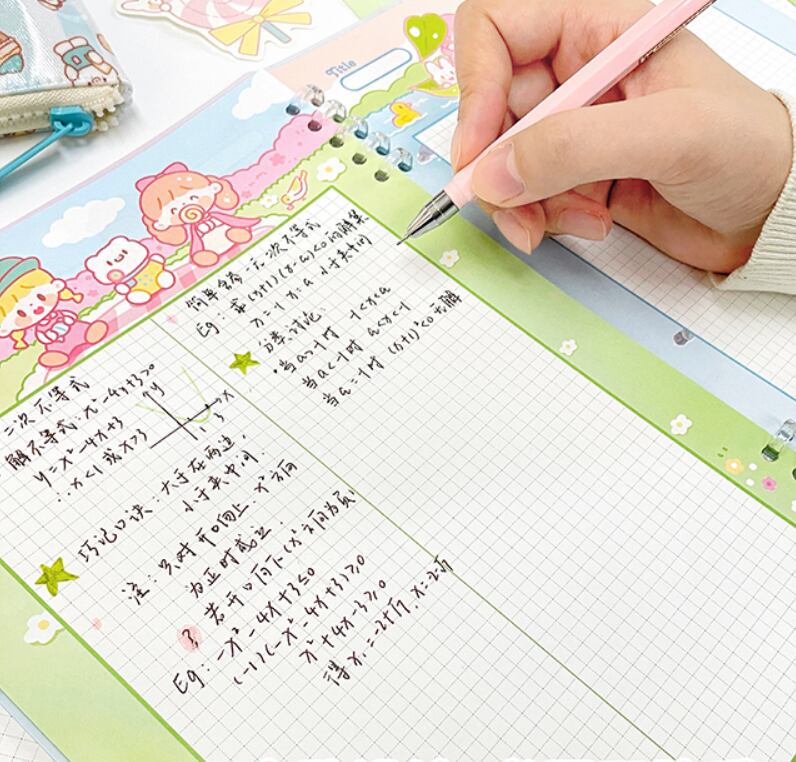 Title
二次不等式
解不等式:x²-4x+3>0
y=x²-4x+3
∴x<1或x>3
y
x
1 3
巧记口诀:大于在两边,
小于夹中间
注:只对开口向上,x²方向
为正时成立.
若开口向下(x²方向为负)
Eg:-x²-4x+3≤0
(-1)(-x²-4x+3)≥0
x²+4x-3≥0
得x₁=-2+√7,x=-2-√7
简单含参一元二次不等式
Eg:求(x+1)(x-a)<0的解集
x=-1 x=a 小于夹中间
分类讨论
·当a>-1时 -1<x<a
当a<-1时 a<x<-1
当a=-1时 (x+1)²<0无解